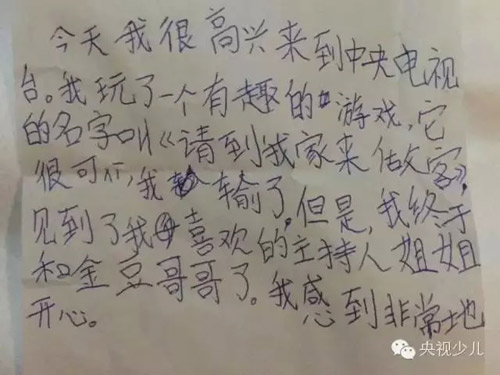 今天我很高兴来到中央电视
台。我玩了一个有趣的游戏,它
的名字叫《请到我家来做客》,
很可,我输了。但是,我终于
见到了我喜欢的主持人姐姐
和金豆哥哥了。我感到非常地
开心。
央视少儿